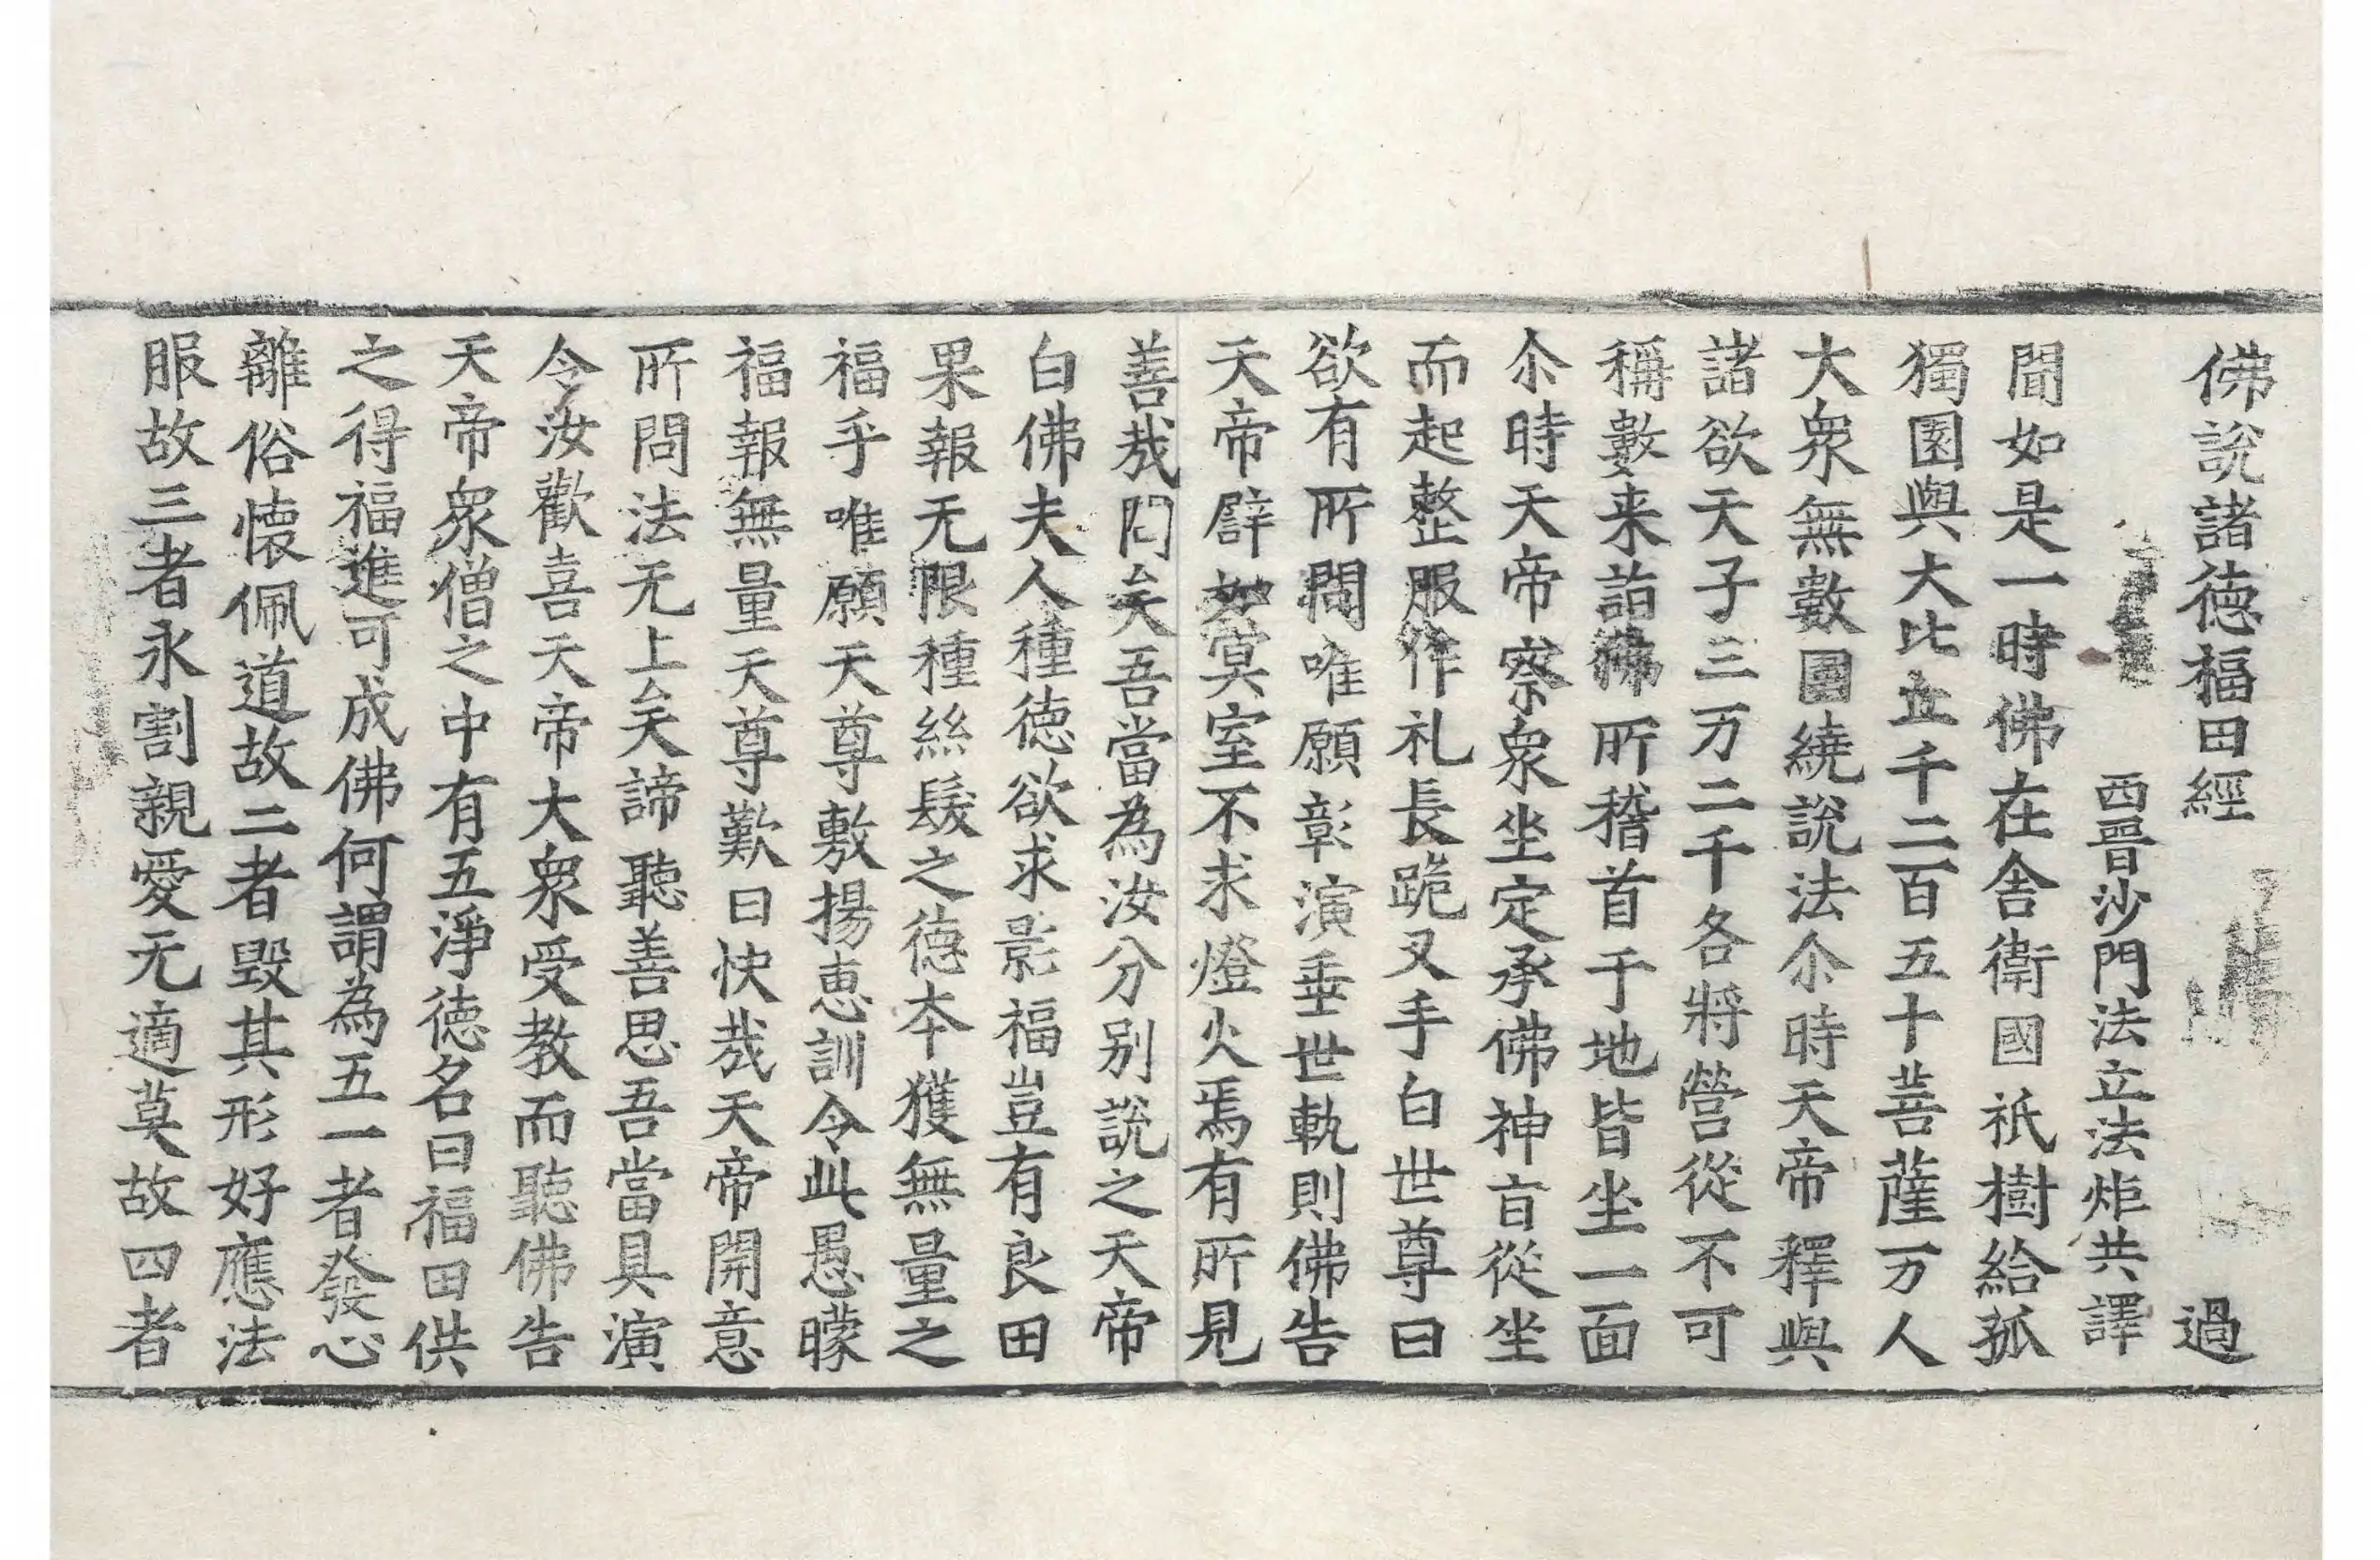 佛說諸徳福田經 過
西晋沙門法立法炬共譯
聞如是一時佛在舎衛國祇樹給孤
獨園與大比丘千二百五十菩薩万人
大衆無數圍繞說法尒時天帝釋與
諸欲天子三万二千各將營從不可
稱數来詣佛所稽首于地皆坐一面
尒時天帝察衆坐定承佛神旨從坐
而起整服作礼長跪叉手白世尊曰
欲有所問唯願彰演垂世軌則佛告
天帝譬如冥室不求燈火焉有所見
善哉問矣吾當為汝分别說之天帝
白佛夫人種徳欲求影福豈有良田
果報无限種絲髮之徳本獲無量之
福乎唯願天尊敷揚恵訓令此愚曚
福報無量天尊歎曰快哉天帝開意
所問法无上矣諦聽善思吾當具演
令汝歡喜天帝大衆受教而聽佛告
天帝衆僧之中有五淨徳名曰福田供
之得福進可成佛何謂為五一者發心
離俗懐佩道故二者毀其形好應法
服故三者永割親愛无適莫故四者